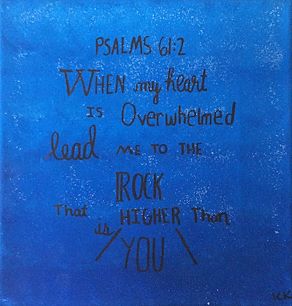 PSALMS 61:2
WHEN my heart
IS Overwhelmed
lead ME TO THE
ROCK
That is HIGHER Than
YOU
SCK